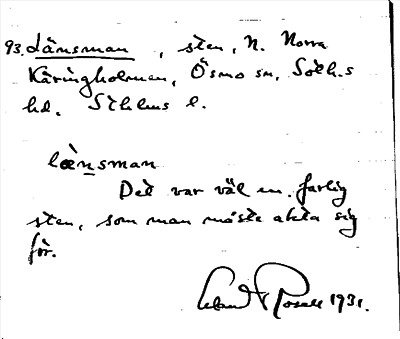 93. Länsman, sten, N. Norra
Käringholmen, Ösmo sn, Söth.s
hd. Sthlms l.
læ̀nsman
Det var väl en farlig
sten, som man måste akta sig
för.
1931.